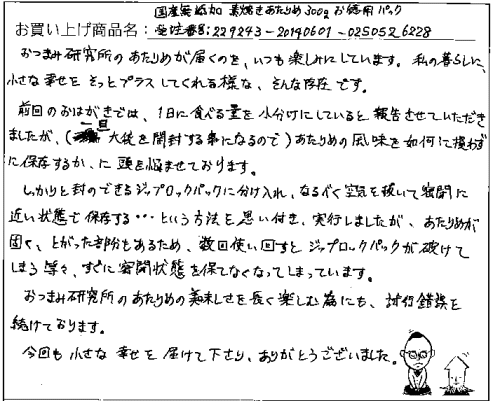 国産無添加 素焼きあたりめ300g お徳用パック
お買い上げ商品名：受注番号：229243-20140601-0250526228
おつまみ研究所のあたりめが届くのを、いつも楽しみにしています。私の暮らしに、
小さな幸せをそっとプラスしてくれる様な、そんな存在です。
前回のおはがきでは、1日に食べる量を小分けにしていると報告させていただき
ましたが、(一旦大袋を開封する事になるので)あたりめの風味を如何に損わず
に保存するか、に頭を悩ませております。
しっかりと封のできるジップロックパックに分け入れ、なるべく空気を抜いて密閉に
近い状態で保存する…という方法を思い付き、実行しましたが、あたりめが
固く、とがった部分もあるため、数回使い回すとジップロックパックが破けて
しまう等々、すぐに密閉状態を保てなくなってしまっています。
おつまみ研究所のあたりめの美味しさを長く楽しむ為にも、試行錯誤を
続けております。
今回も小さな幸せを届けて下さり、ありがとうございました。